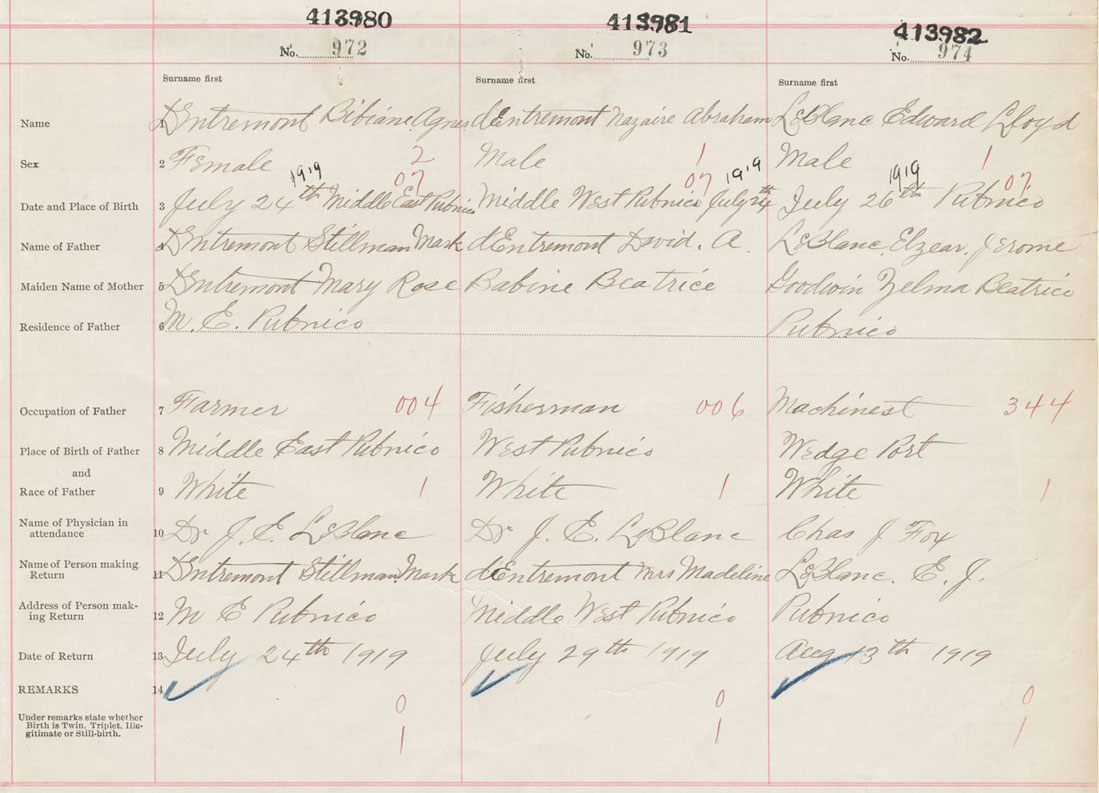 413980 413981 413982
No. 972 No. 973 No. 974
Surname first Surname first Surname first
Name 1 DEntremont Bibiane Agnes dEntremont Nazaire Abraham LeBlanc Edward Lloyd
Sex 2 Female 2 Male 1 Male 1
1919 07 07 1919 1919 07
Date and Place of Birth 3 July 24th Middle East Pubnico Middle West Pubnico July 24th July 26th Pubnico
Name of Father 4 DEntremont Stillman Mark dEntremont David. A. LeBlanc, Elzear. Jerome
Maiden Name of Mother 5 DEntremont Mary Rose Babine Beatrice Goodwin Zelma Beatrice
Residence of Father 6 M. E. Pubnico Pubnico
Occupation of Father 7 Farmer 004 Fisherman 006 Machinest 344
Place of Birth of Father 8 Middle East Pubnico West Pubnico Wedge Port
and
Race of Father 9 White 1 White 1 White 1
Name of Physician in
attendance 10 Dr J. E. LeBlanc Dr J. E. LeBlanc Chas J Fox
Name of Person making
Return 11 DEntremont Stillman Mark dEntremont Mrs Madeline LeBlanc. E. J.
Address of Person mak-
ing Return 12 M E Pubnico Middle West Pubnico Pubnico
Date of Return 13 July 24th 1919 July 29th 1919 Aug 13th 1919
REMARKS 14
0 0 0
Under remarks state whether
Birth is Twin, Triplet, Ille-
gitimate or Still-birth.
1 1 1